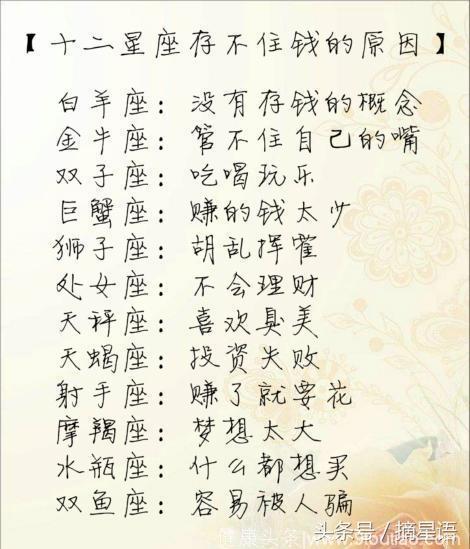 【十二星座存不住钱的原因】
白羊座：没有存钱的概念
金牛座：管不住自己的嘴
双子座：吃喝玩乐
巨蟹座：赚的钱太少
狮子座：胡乱挥霍
处女座：不会理财
天秤座：喜欢臭美
天蝎座：投资失败
射手座：赚了就要花
摩羯座：梦想太大
水瓶座：什么都想买
双鱼座：容易被人骗
头条号/摘星语